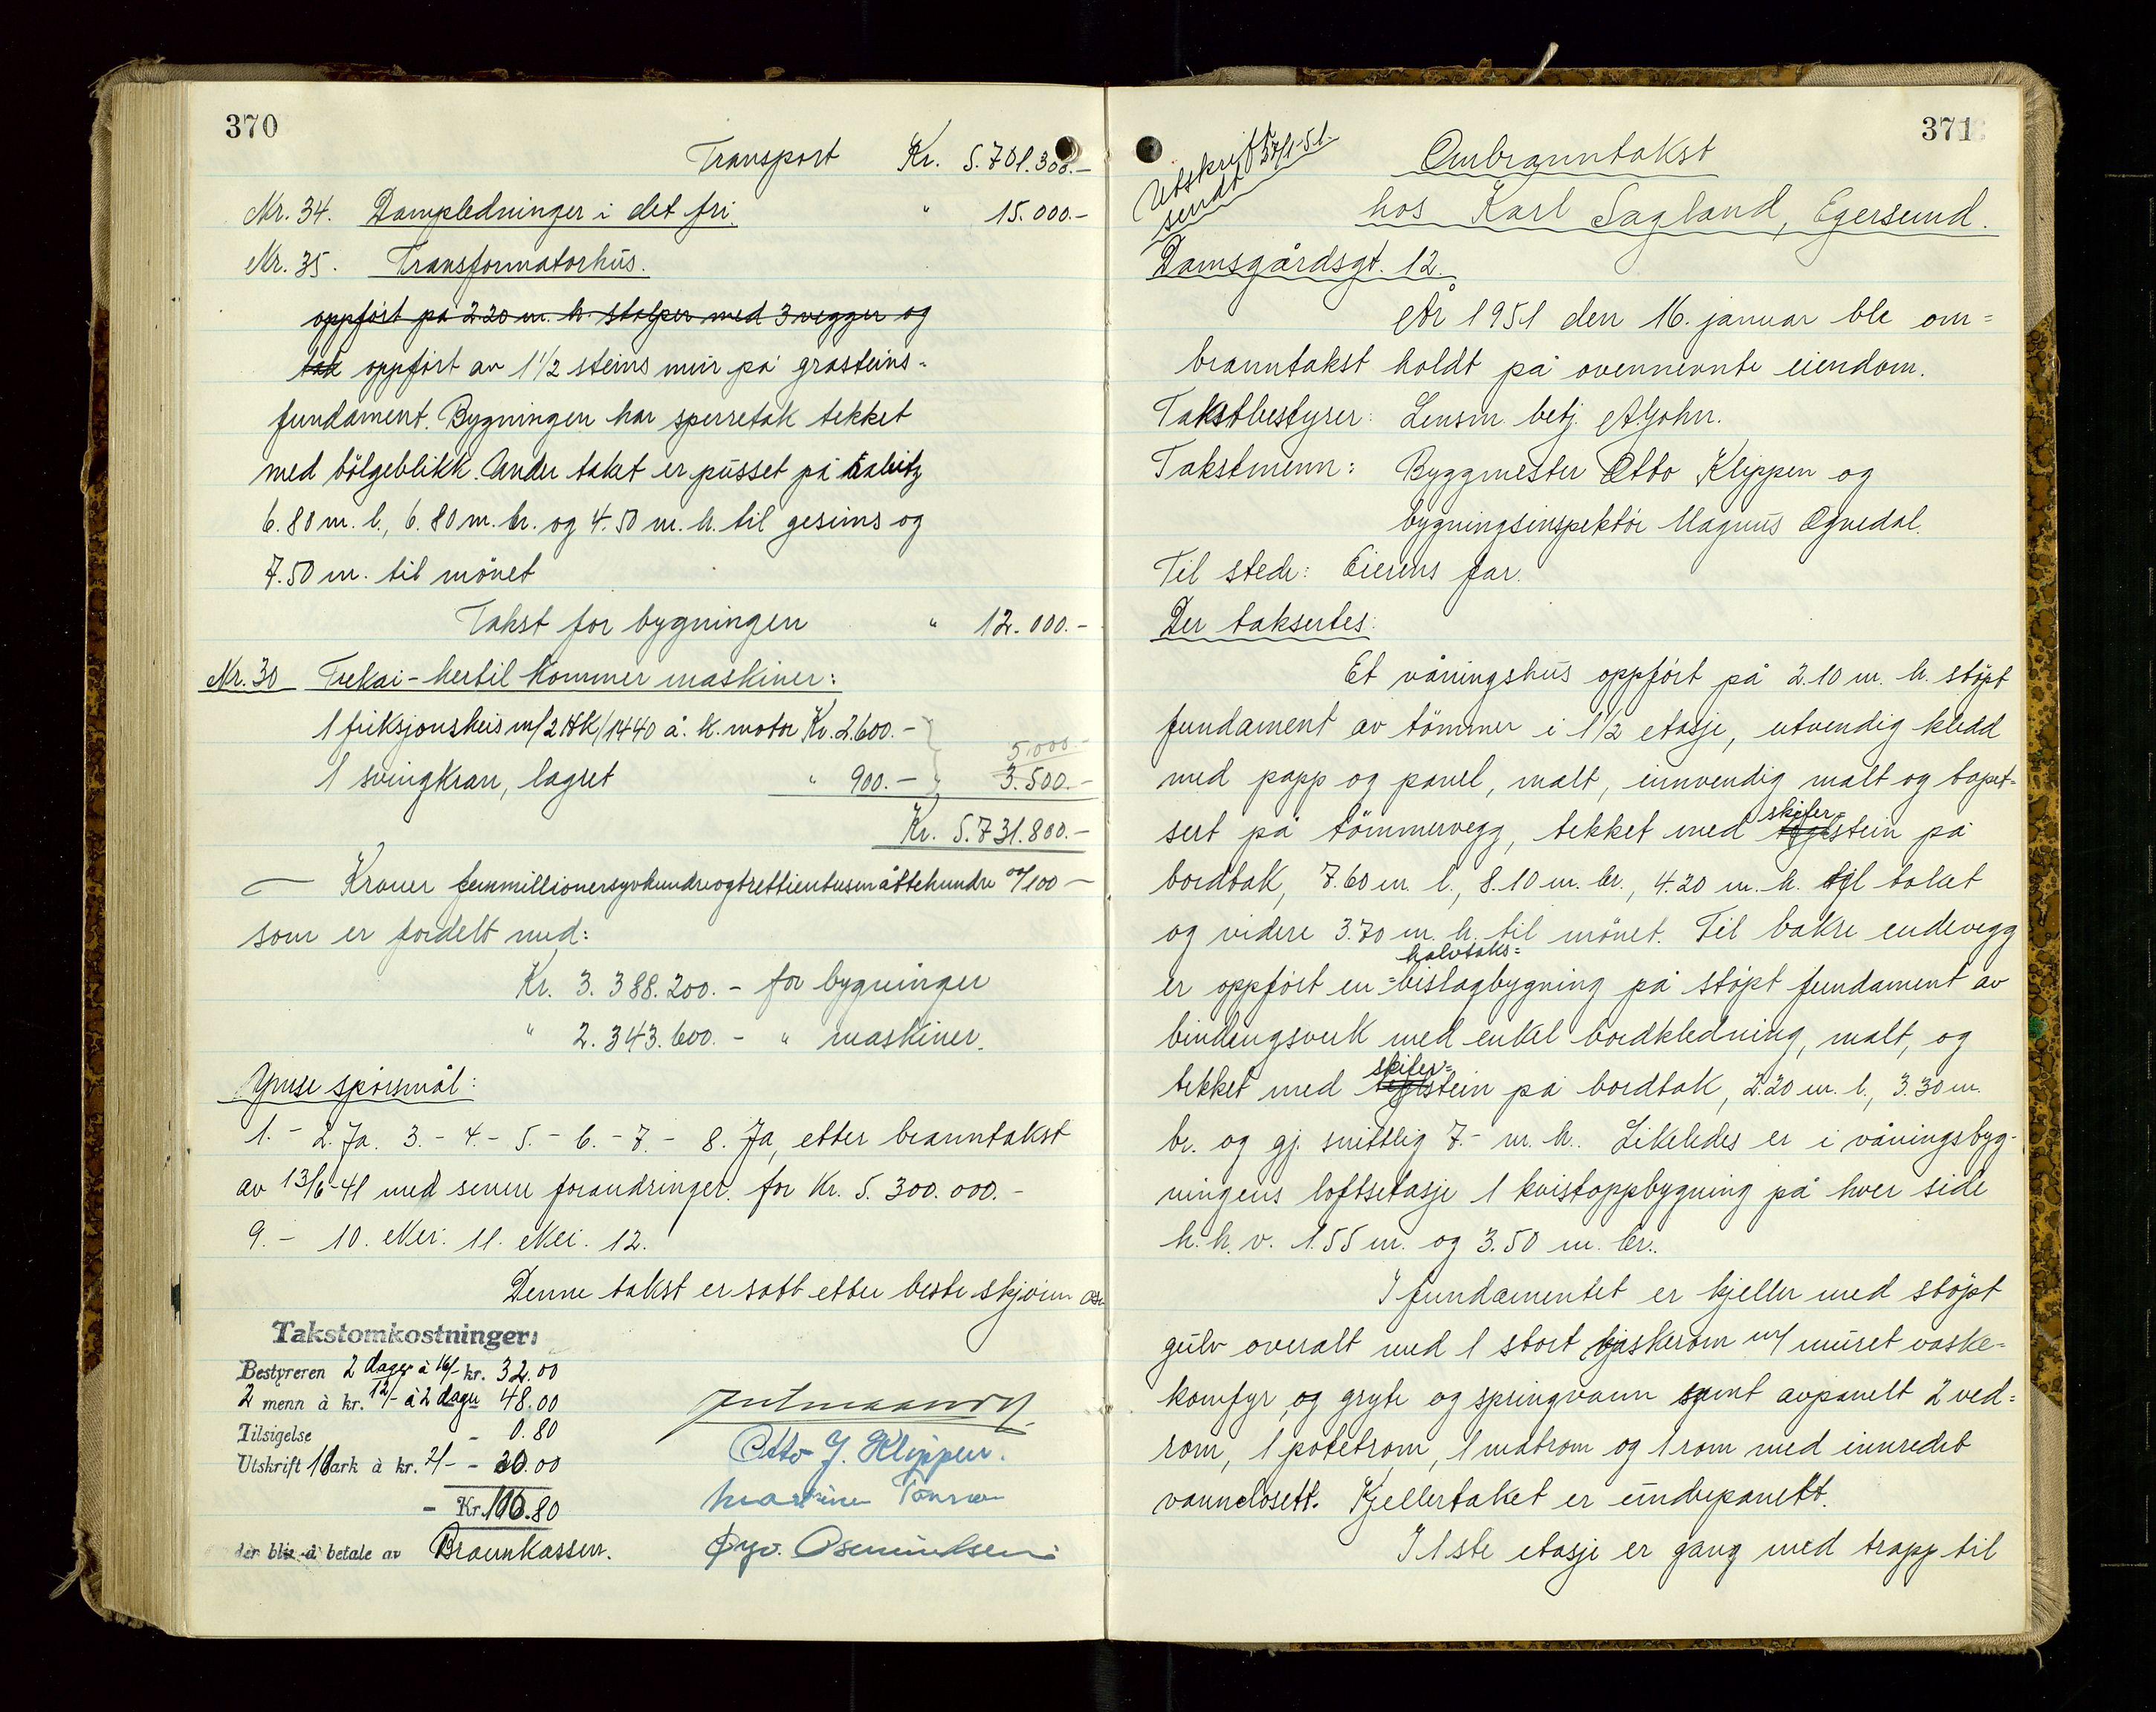 370
Transport Kr. 5.701.300.-
Nr. 34. Dampledninger i det fri. " 15.000.-
Nr. 35. Transformatorhus.
oppført på 2.20 m. h. stolper med 3 vegger og
tak oppført av 1 1/2 steins mur på grasteins-
fundament. Bygningen har sperretak tekket
med bölgeblikk. Under taket er pusset på rabitz
6.80 m. l., 6.80 m. br. og 4.50 m. h. til gesims og
7.50 m. til mönet
Takst for bygningen " 12.000.-
Nr. 30 Trekai - hertil kommer maskiner:
1 friksjonsheis m/2 HK/1440 o. h. motor Kr. 2.600.-
5.000.-
1 svingkran, lagret " 900.- " 3.500.-
Kr. 5.731.800.-
— Kroner femmillionersyvhundreogtrettientusenåttehundre 00/100 —
som er fordelt med:
Kr. 3.388.200.- for bygninger
" 2.343.600.- " maskiner.
Ymse spörsmål:
1. - 2. Ja. 3. - 4. - 5. - 6. - 7. - 8. Ja, etter branntakst
av 13/6-41 med senere forandringer. for Kr. 5.300.000.-
9. - 10. Nei. 11. Nei. 12.
Denne takst er satt etter beste skjönn
Takstomkostninger:
Bestyreren 2 dager à 16/- kr. 32.00
2 menn à kr. 12/- à 2 dager 48.00
Tilsigelse - 0.80
Utskrift 10 ark à kr. 2/- - 20.00
- Kr. 100.80
der blir å betale av Brannkassen.
Otto J. Klippen.
371
Utskrift
sendt 27/1-51.
Ombranntakst
hos Karl Sagland, Egersund.
Damsgårdsgt. 12.
År 1951 den 16. januar ble om=
branntakst holdt på ovennevnte eiendom.
Takstbestyrer: Lensm. betj. A. Gohn.
Takstmenn: Byggmester Otto Klippen og
bygningsinspektör Magnus Ognedal.
Til stede: Eierens far.
Der taksertes:
Et våningshus oppfört på 2.10 m. h. stöpt
fundament av tömmer i 1 1/2 etasje, utvendig kledd
med papp og panel, malt, innvendig malt og tapet-
skifer=
sert på tömmervegg, tekket med teglstein på
bordtak, 7.60 m. l., 8.10 m. br., 4.20 m. h. til taket
og videre 3.70 m. h. til mönet. Til bakre endevegg
halvtaks=
er oppfört en =bislagbygning på stöpt fundament av
bindingsverk med enkel bordkledning, malt, og
skifer=
tekket med teglstein på bordtak, 2.20 m. l., 3.30 m.
br. og gj. snittlig 7.- m. h.. Likeledes er i våningsbyg-
ningens loftsetasje 1 kvistoppbygning på hver side
h. h. v. 1.55 m. og 3.50 m. br..
I fundamentet er kjeller med stöpt
gulv overalt med 1 stort vaskerom m/ muret vaske-
komfyr og gryte og springvann samt avpanelt 2 ved=
rom, 1 potetrom, 1 matrom og 1 rom med innredet
vannclosett. Kjellertaket er underpanelt.
I 1ste etasje er gang med trapp til